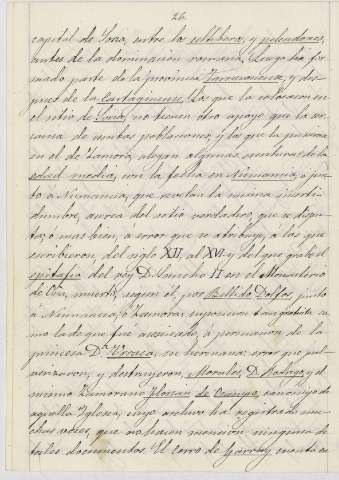 26.
capital de Soria, entre los celtíberos, y pelendones,
antes de la dominacion romana. Luego hizo for
mado parte de la provincia Tarraconense, y des
pues de la Cartaginense. Los que la colocaron en
el sitio de Soria, no tienen otro apoyo que la
de ambas poblaciones; y los que la pusieron
en el de Zamora, alegan algunas escrituras de la
edad media, con la fecha en Numancia, ó jun
to á Numancia, que revelan la misma incerti-
dumbre, acerca del sitio verdadero, que se dispu-
ta; ó mas bien, á error que se atribuye, á los que
escribieron, del siglo XII, al XVI y del que grabó el
epitafio del rey D. Sancho II en el Monasterio
de Oña, muerto, segun él, por Bellido Dolfos, junto
á Numancia, ó Zamora: suposicion tan gratuita co
mo la de que fué asesinado, á persuasion de la
princesa Dª. Urraca, su hermana: error que pul-
verizaron, y destruyeron, Morales, D. Rodrigo, y el
mismo Zamorano Florian de Ocampo, canónigo de
aquella Iglesia, cuyo archivo ha registrado mu
chas veces, que no hacen mencion ninguna de
tales documentos. El cerro de Garray